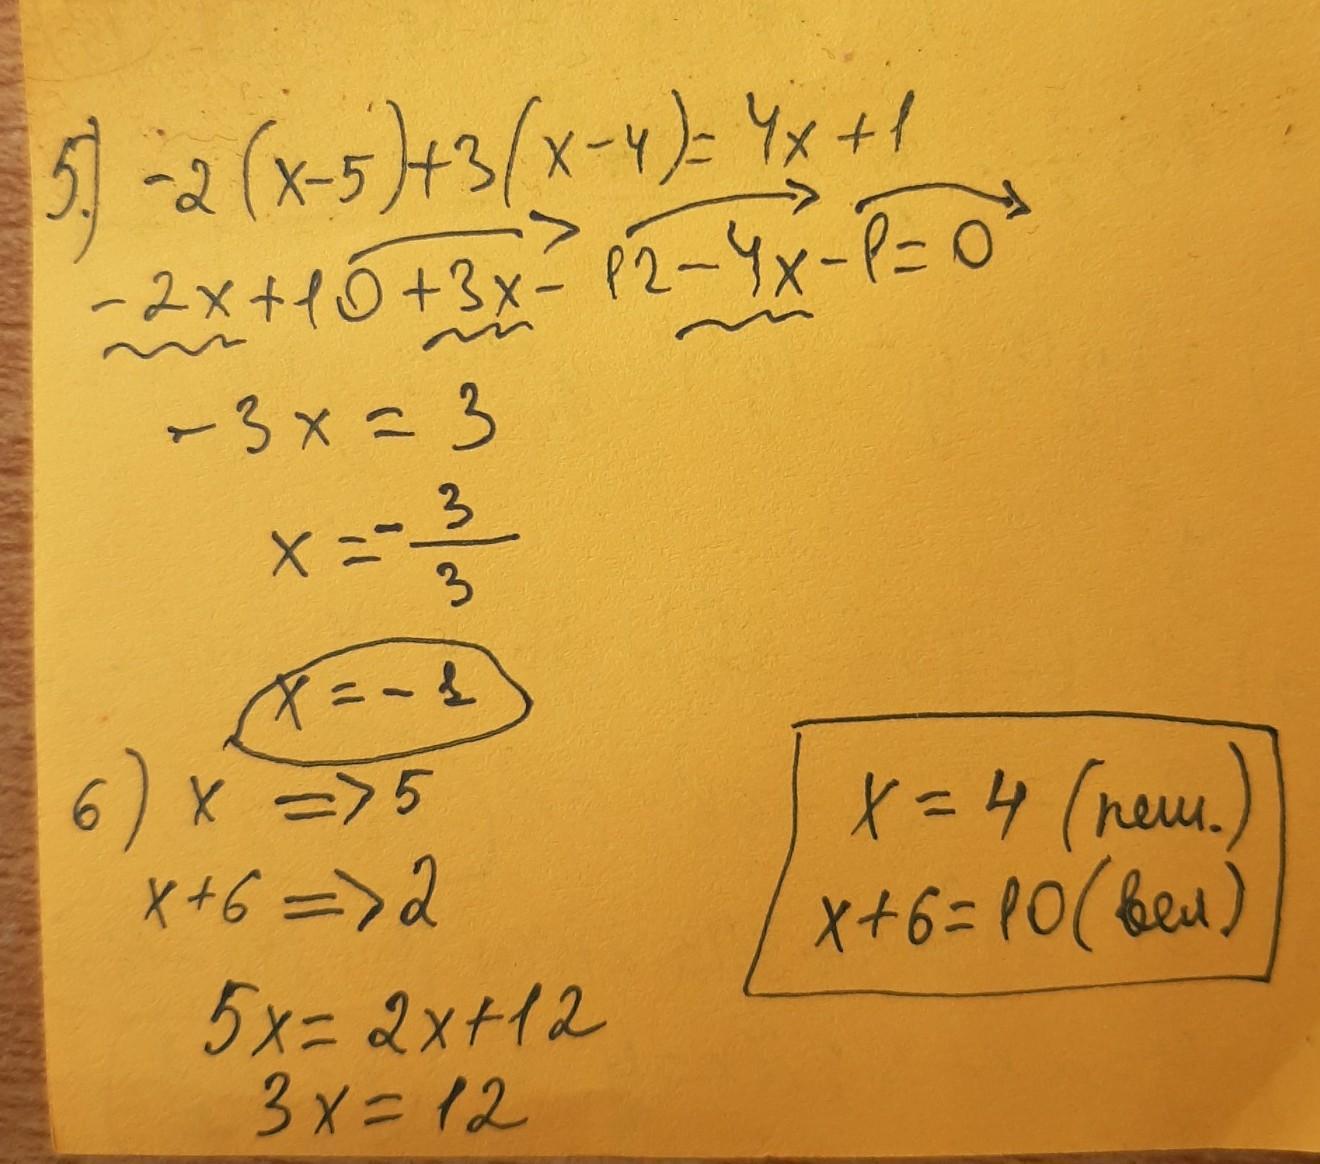 5.) -2(x-5)+3(x-4)=4x+1
-2x+10+3x-12-4x-1=0
-3x=3
x=-3/3
x=-1
6) x =>5
x+6 =>2
5x=2x+12
3x=12
x=4 (пеш.)
x+6=10(вел)